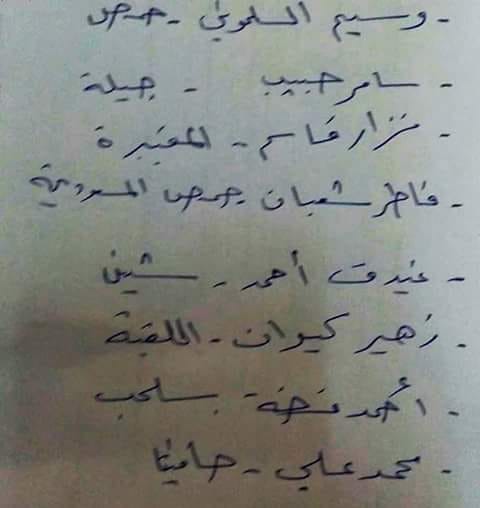 - وسيم السلموني - حمص
- سامر حبيب - جبلة
- نزار قاسم - المقبرة
- فاطر شعبان - حمص المسعودية
- أحمد - شين
- زهير كيوان - اللقبة
- أحمد - سلحب
- محمد علي -